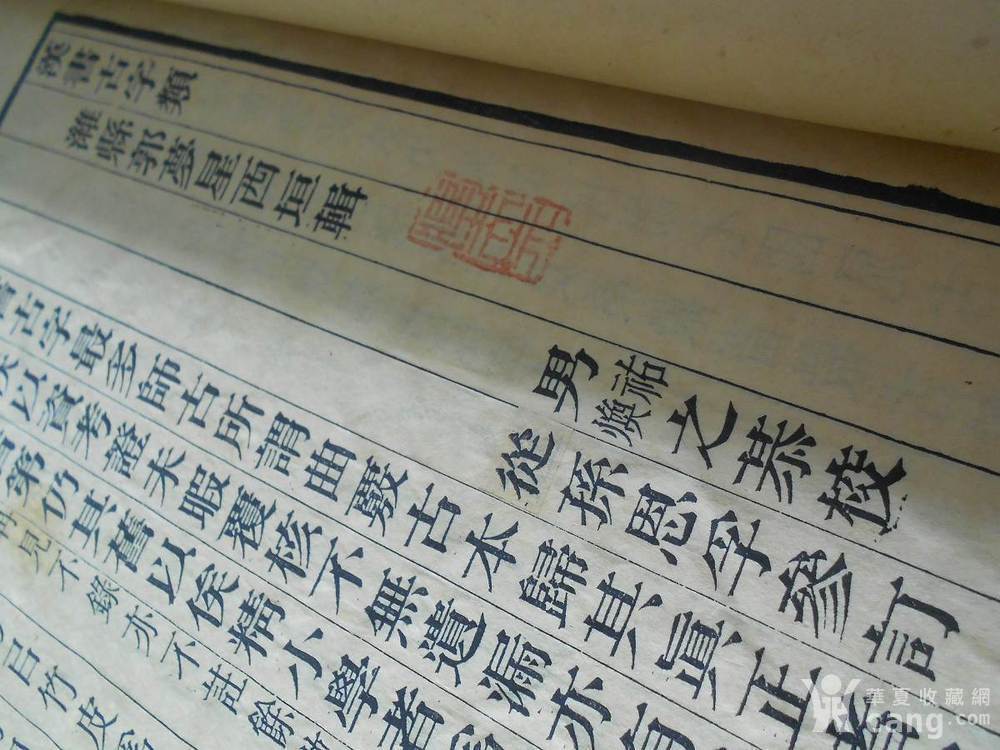 漢書古字類
濰縣郭夢星西垣輯
男祐煥之恭校
從孫恩孚參訂
書古字最多師古所謂曲覈古本歸其真正
以資考證未暇覆檢不無遺漏亦有
第仍其舊以俟精小學者
見不錄亦不註餘
曰竹皮
華夏收藏網
cang.com